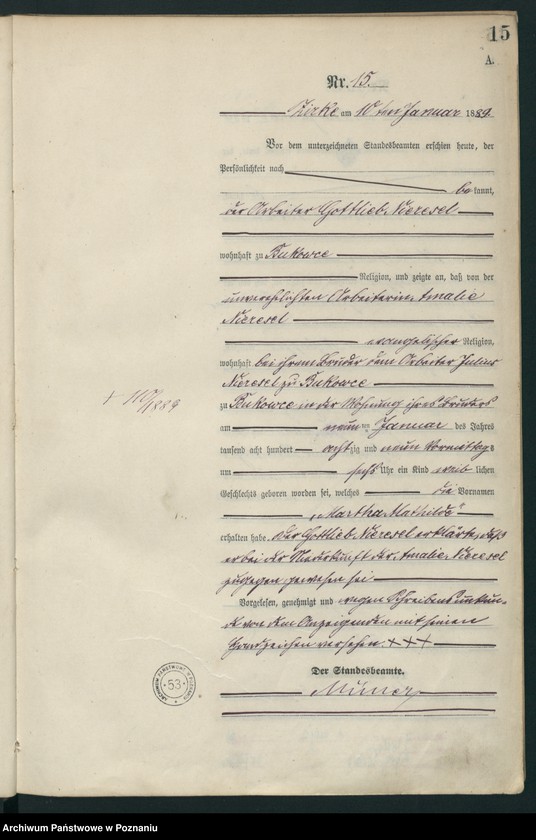 15
A.
Nr. 15.
Zirke am 10ten Januar 1889.
Vor dem unterzeichneten Standesbeamten erschien heute, der
Persönlichkeit nach
bekannt,
der Arbeiter Gottlieb Nieresel
wohnhaft zu Bukowce
Religion, und zeigte an, daß von der
unverehelichten Arbeiterin Amalie
Nieresel
evangelischer Religion,
wohnhaft bei ihrem Bruder dem Arbeiter Julius
Nieresel zu Bukowce
+ 1889
zu Bukowce in der Wohnung ihres Bruders
am neunten Januar des Jahres
tausend acht hundert achtzig und neun Vormittags
um sechs Uhr ein Kind weiblichen
Geschlechts geboren worden sei, welches die Vornamen
„Martha Mathilde"
erhalten habe. Der Gottlieb Nieresel erklärte, daß
er bei der Niederkunft der Amalie Nieresel
zugegen gewesen sei
Vorgelesen, genehmigt und wegen Schreibensunkun-
de von dem Anzeigenden mit seinen
Handzeichen versehen. +++
Der Standesbeamte.
ARCHIWUM PAŃSTWOWE W POZNANIU
53
Archiwum Państwowe w Poznaniu